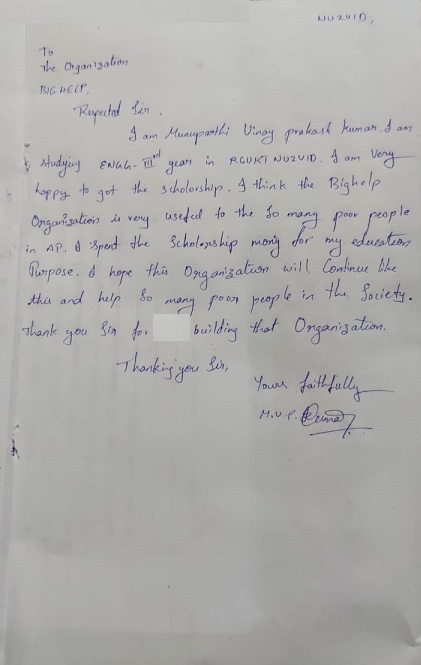 NUZVID,
To
The Organization
BIG HELP.
Respected Sir,
I am Munuparthi Vinay prakash kumar. I am
studying ENGG-IIIrd year in RGUKT NUZVID. I am Very
happy to got the scholorship. I think the Bighelp
Organization is very useful to the So many poor people
in AP. I spent the Scholorship mony for my education
Purpose. I hope this Organization will Continue like
this and help So many poor people in the Society.
Thank you Sir for building that Organization.
Thanking you Sir,
Yours faithfully
M.V.P. Kumar